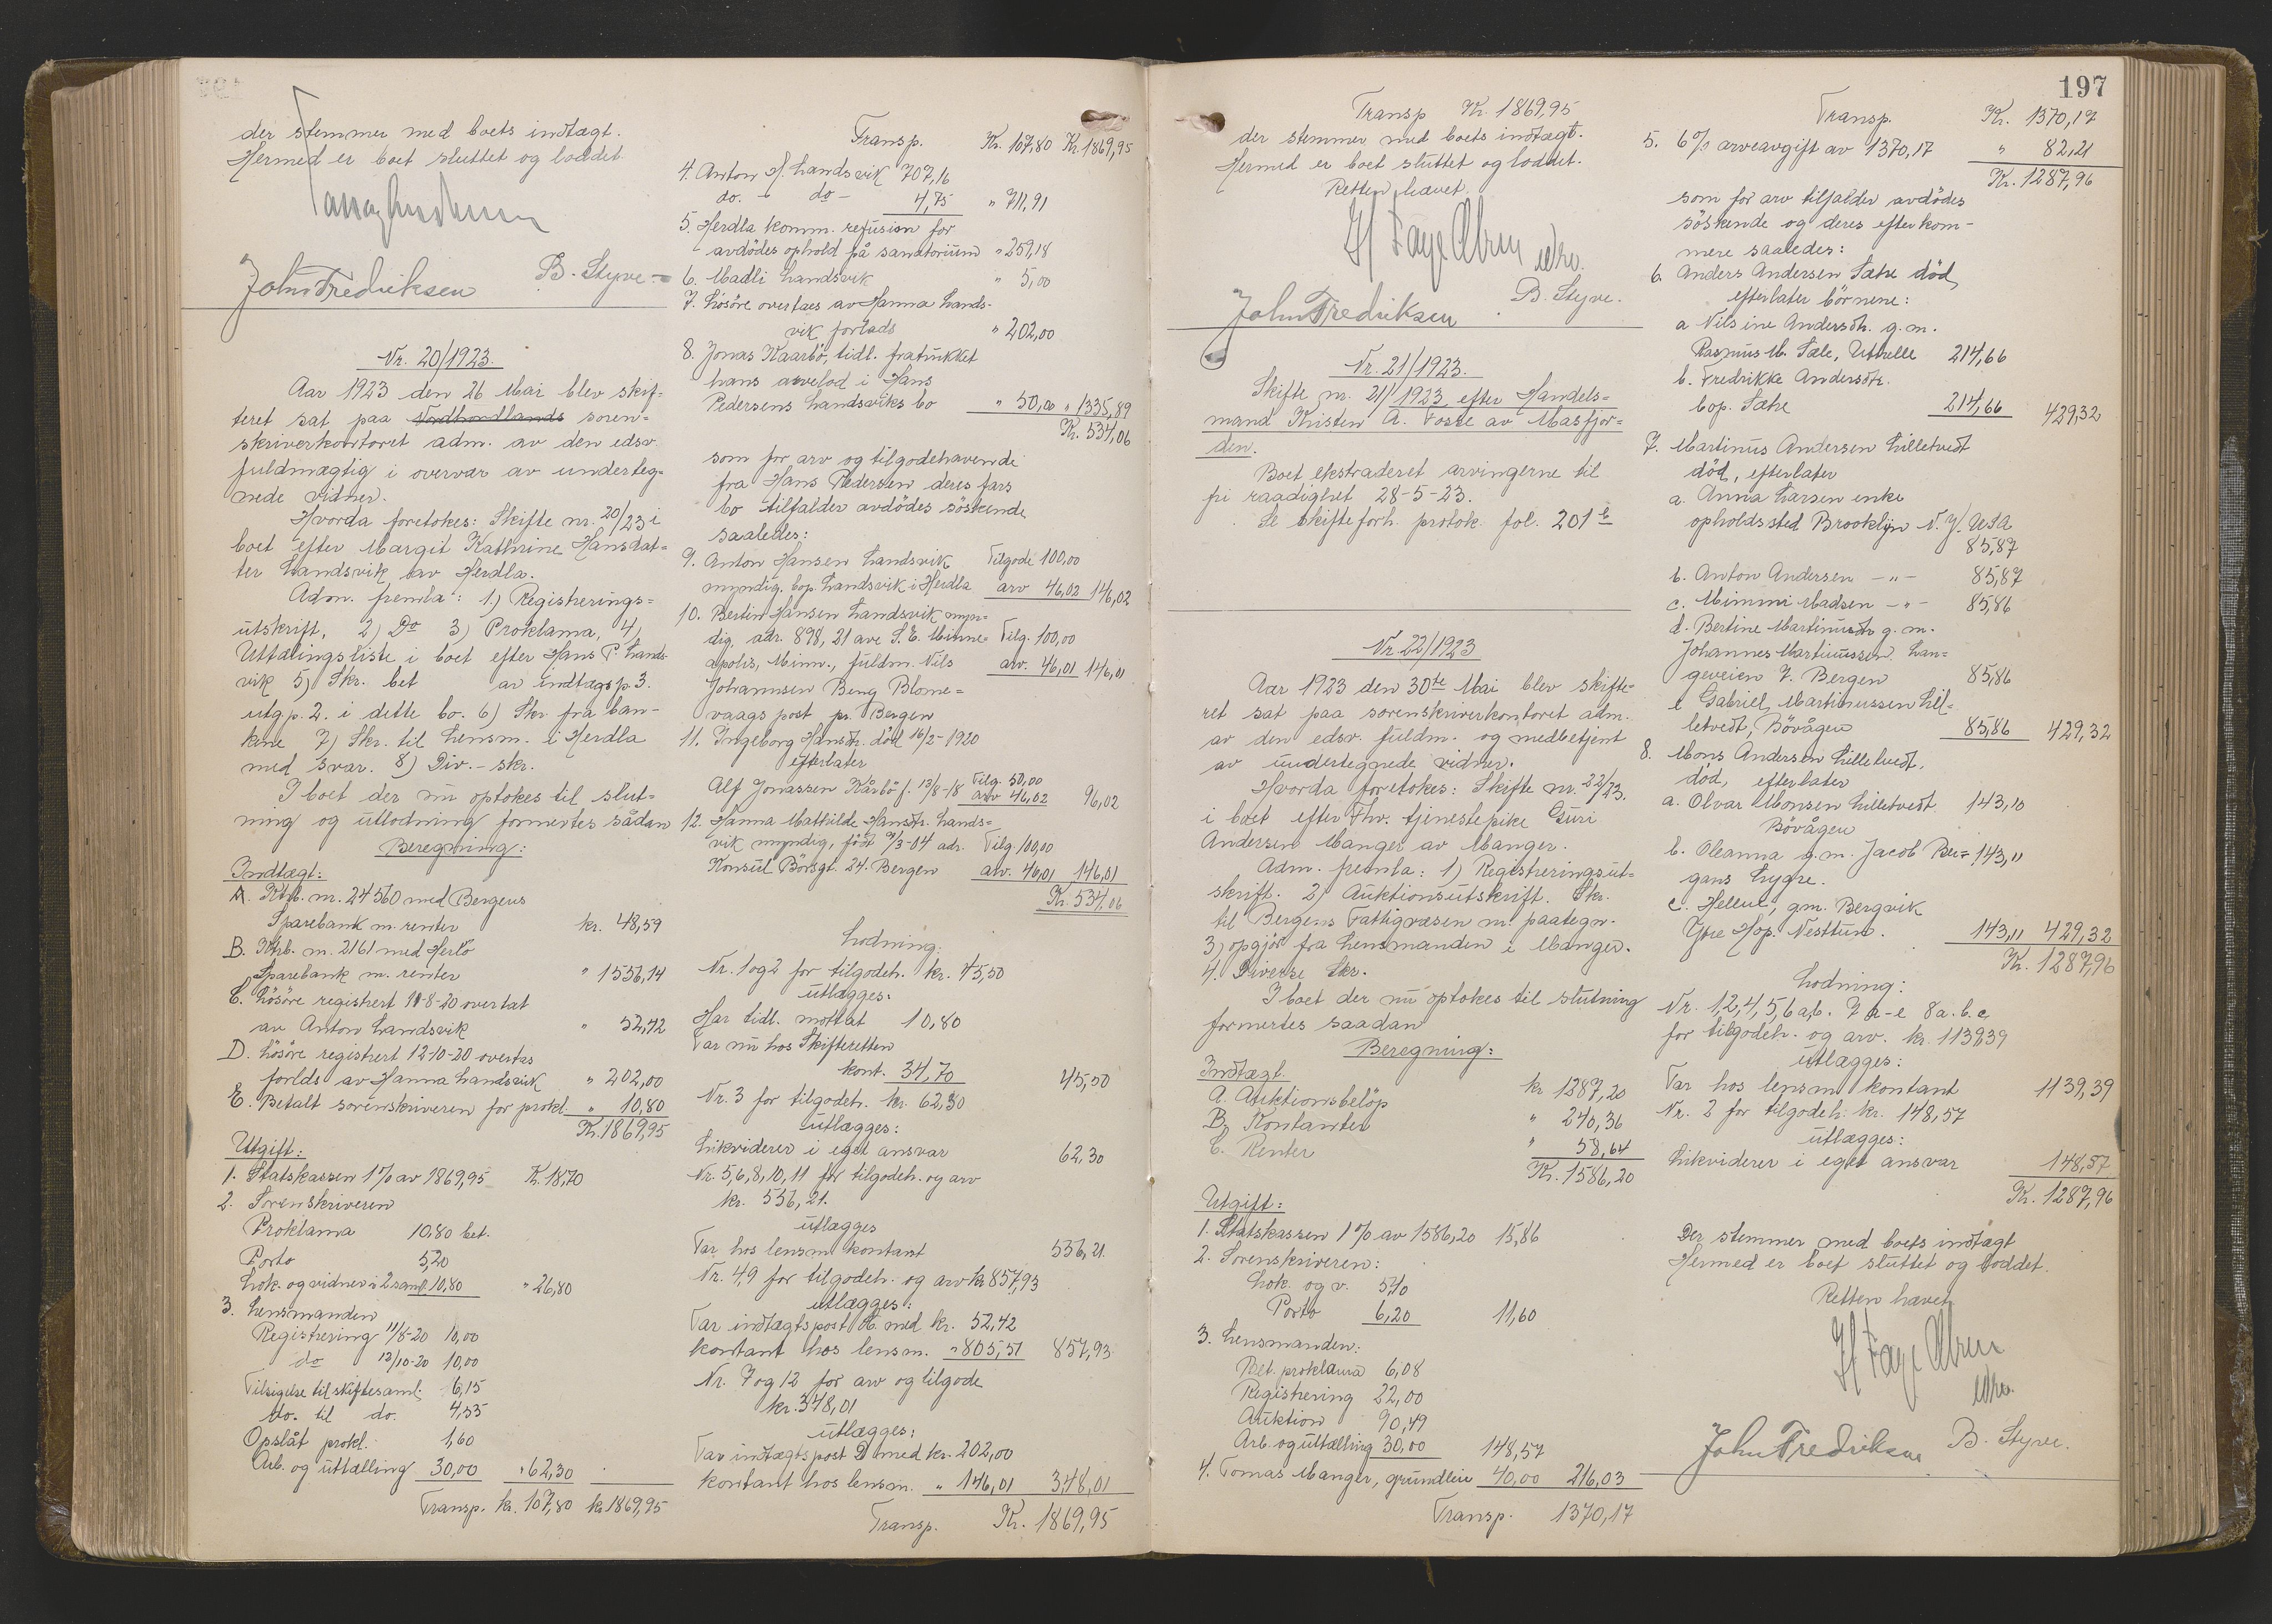 der stemmer med boets indtægt.
Hermed er boet sluttet og loddet.
John Fredriksen
B. Styve.
Nr. 20/1923.
Aar 1923 den 26 Mai blev skif-
teret sat paa Nordhordlands soren-
skriverkontoret adm. av den edsv.
fuldmægtig i overvær av underteg-
nede vidner.
Hvorda foretokes: Skifte nr. 20/23 i
boet efter Margit Kathrine Hansdat-
ter Landsvik av Herdla.
Adm. fremla: 1.) Registrerings=
utskrift, 2) Do 3) Proklama, 4)
Utlælingsliste i boet efter Hans P. Lands-
vik 5) Skr. bet av indtægsp. 3.
utg p. 2. i dette bo. 6) Skr. fra ban-
kene 7) Skr. til Lensm. i Herdla
med svar. 8) Div. - skr.
I boet der nu optokes til slut=
ning og utlodning formertes sådan
Beregning:
Indtægt:
A. Ktrb. nr. 24560 med Bergens
Sparebank m. renter kr. 48,59
B. Ktrb. nr. 2161 med Herlö
Sparebank m. renter " 1556,14
C. Lösöre registrert 11-8-20 overtat
av Anton Landsvik " 52,42
D. Lösöre registrert 12-10-20 overtas
forlds av Hanna Landsvik " 202,00
E. Betalt sorenskriveren for prokl. " 10,80
Kr. 1869,95
Utgift:
1. Statskassen 1% av 1869,95 K. 18,70
2. Sorenskriveren
Proklama 10,80 bet.
Porto 5,20
Lok. og vidner i 2 saml. 10,80 " 26,80
3. Lensmanden
Registrering 11/8-20 10,00
do 12/10-20 10,00
Tilsigelse til skiftesaml. 6,15
do. til do. 4,55
Opslåt prokl. 1,60
Arb. og uttælling 30,00 " 62,30
Transp. kr. 107,80 kr. 1869,95
Transp. Kr. 107,80 Kr. 1869,95
4. Anton H. Landsvik 707,16
do. - do - 4,75 " 711,91
5. Herdla komm. refusion for
avdödes ophold på sanatorium " 259,18
6. Madli Landsvik " 5,00
7. Lösöre overtaes av Hanna Lands-
vik forlods " 202,00
8. Jonas Kaarbö, tidl. fratrukket
hans arvelod i Hans
Pedersens Landsviks bo " 50,00 " 1335,89
Kr. 534,06
som for arv og tilgodehavende
fra Hans Pedersen deres fars
bo tilfalder avdödes söskende
saaledes:
9. Anton Hansen Landsvik Tilgode 100,00
myndig. bop. Landsvik i Herdla arv 46,02 146,02
10. Bertin Hansen Landsvik myn-
dig, adr. 898, 21 ave S. E. Minne= Tilg. 100,00
apolis, Minn., fuldm. Nils arv. 46,01 146,01
Johannsen Beng Blome=
vaags post pr. Bergen
11. Ingeborg Hansdtr. död 16/2-1920
efterlater
Alf Jonassen Kårbö f. 13/8-18 Tilg. 50,00
arv 46,02 96,02
12. Hanna Mathilde Hansdtr. Lands=
vik myndig, födt 9/3-04 adr. Tilg. 100,00
Konsul Börsgt. 24. Bergen arv. 46,01 146,01
Kr. 534,06
Lodning:
Nr. 1 og 2 for tilgodeh. kr. 45,50
utlægges:
Har tidl. mottat 10,80
Tar nu hos Skifteretten
kont. 34,70 45,50
Nr. 3 for tilgodeh. kr. 62,30
utlægges:
Likviderer i eget ansvar 62,30
Nr. 5, 6, 8, 10, 11 for tilgodeh. og arv
kr. 556,21.
utlægges
Tar hos lensm. kontant 556,21.
Nr. 4, 9 for tilgodeh. og arv kr 857,93
utlægges:
Tar indtægtspost C. med kr. 52,42
kontant hos lensm. " 805,51 857,93
Nr. 7 og 12 for arv og tilgode
kr. 348,01
utlægges:
Tar indtægtspost D med kr. 202,00
kontant hos lensm. " 146,01 348,01
Transp. Kr. 1869,95
197
Transp Kr. 1869,95
der stemmer med boets indtægt.
Hermed er boet sluttet og loddet.
Retten hævet.
John Fredriksen
B. Styve.
Nr. 21/1923.
Skifte nr. 21/1923 efter Handels=
mand Kristen A. Fosse av Masfjor=
den.
Boet ekstraderet arvingerne til
fri raadighet 28-5-23.
Se skifteforh. protok. fol. 201 b
Nr. 22/1923
Aar 1923 den 30te Mai blev skifte=
ret sat paa sorenskriverkontoret adm.
av den edsv. fuldm. og medbetjent
av undertegnede vidner.
Hvorda foretokes: Skifte nr. 22/23.
i boet efter Fhv. tjenestepike Guri
Andersen Manger av Manger.
Adm. fremla: 1) Registreringsut-
skrift. 2) Auktionsutskrift. Skr.
til Bergens Fattigvæsen m. paategn.
3) opgjör fra Lensmanden i Manger.
4. Diverse Skr.
I boet der nu optokes til slutning
formertes saadan
Beregning:
Indtægt.
A. Auktionsbelöp kr 1287,20
B. Kontanter " 240,36
C. Renter " 58,64
Kr. 1586,20
Utgift:
1. Statskassen 1% av 1586,20 15,86
2. Sorenskriveren:
Lok. og v. 5,40
Porto 6,20 11,60
3. Lensmanden:
Bet. proklama 6,08
Registrering 22,00
Auktion 90,49
Arb. og uttælling 30,00 148,57
4. Tomas Manger, grundleie 40,00 216,03
Transp. 1370,17
Transp. Kr. 1370,17
5. 6% arveavgift av 1370,17 " 82,21
Kr. 1287,96
som for arv tilfalder avdödes
söskende og deres efterkom-
mere saaledes:
6. Anders Andersen Sætre död,
efterlater börnene:
a Nilsine Andersdtr. g.m.
Rasmus M. Sæle, Utvelle 214,66
b. Fredrikke Andersdtr.
bop. Sætre 214,66 429,32
7. Martinus Andersen Lilletvedt
död, efterlater
a. Anna Larsen enke
opholdssted Brooklyn N. Y. USA
85,87
b. Anton Andersen - " - 85,87
c. Mimmi Madsen - " - 85,86
d. Bertine Martinusdtr g. m.
Johannes Martinussen. Lan=
geveien 7. Bergen 85,86
e Gabriel Martinussen Lil=
letvedt, Bövågen 85,86 429,32
8. Mons Andersen Lilletvedt,
död, efterlater
a. Olvar Monsen Lilletvedt 143,10
Bövågen
b. Oleanna g.m. Jacob Ber= 143,11
gans Lygre.
c. Hellue, gm. Bergvik
Ytre Hop. Nesttun. 143,11 429,32
Kr. 1287,96
Lodning:
Nr. 1, 2, 4, 5, 6 a, b. 7 a-e 8 a. b. c
for tilgodeh. og arv. kr. 1139,39
utlægges:
Tar hos lensm. kontant 1139,39
Nr. 3 for tilgodeh. kr. 148,57
utlægges:
Likviderer i eget ansvar 148,57
Kr. 1287,96
Der stemmer med boets indtægt
Hermed er boet sluttet og loddet.
Retten hævet
John Fredriksen
B. Styve.